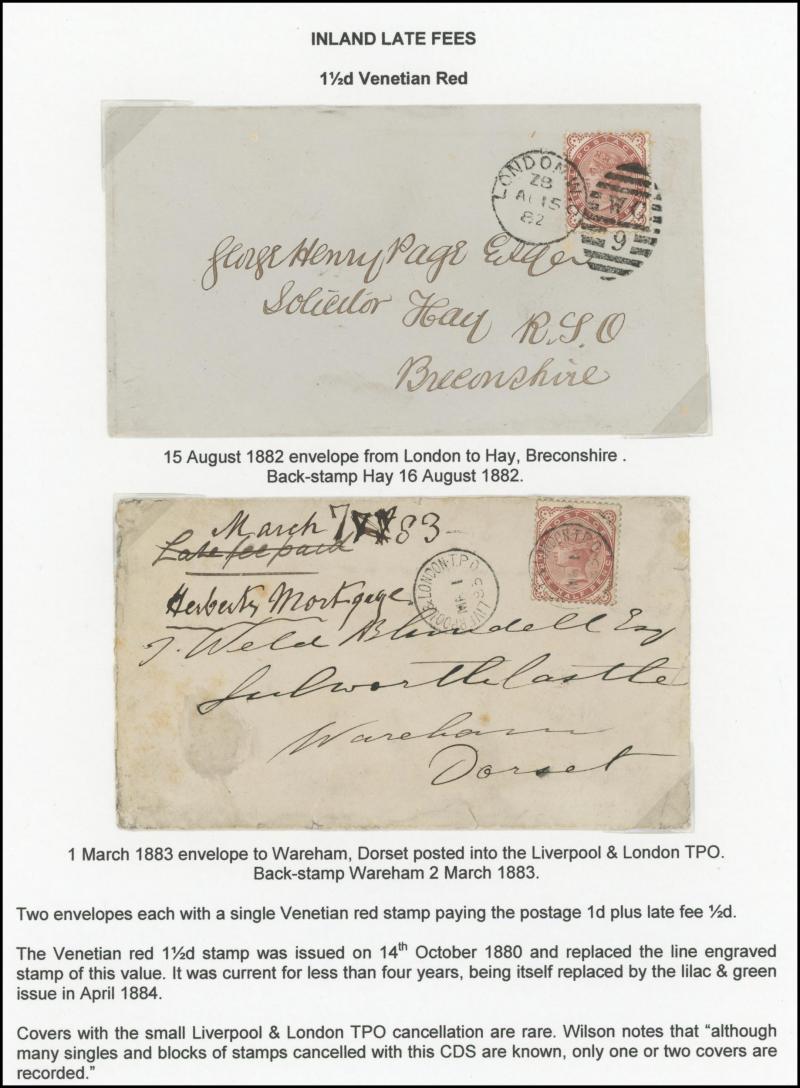 INLAND LATE FEES
1½d Venetian Red
POSTAGE
LONDON·W.C
ZB
AU 15
82
WC
9
George Henry Page Esqre
Solicitor Hay R.S.O
Breconshire
15 August 1882 envelope from London to Hay, Breconshire .
Back-stamp Hay 16 August 1882.
March 83
Late fee paid
Herberts Mortgage
LIVERPOOL & LONDON·T.P.O.
MR 1
83
T. Weld Blundell Esq
Lulworth Castle
Wareham
Dorset
1 March 1883 envelope to Wareham, Dorset posted into the Liverpool & London TPO.
Back-stamp Wareham 2 March 1883.
Two envelopes each with a single Venetian red stamp paying the postage 1d plus late fee ½d.
The Venetian red 1½d stamp was issued on 14th October 1880 and replaced the line engraved
stamp of this value. It was current for less than four years, being itself replaced by the lilac & green
issue in April 1884.
Covers with the small Liverpool & London TPO cancellation are rare. Wilson notes that “although
many singles and blocks of stamps cancelled with this CDS are known, only one or two covers are
recorded.”